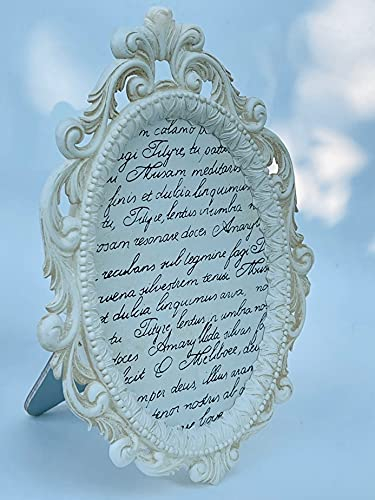 m calamo p
egi Tityre, tu
ii Musam meditaris
finis et dulcia linquimus
tu, Tityre, lentus in umbra
osam resonare doces Amaryl
recubans sub tegmine fagi T
uena silvestrem tenui Mus
et dulcia linquimus arva no
tu, Tityre, lentus in umbra
doces Amaryllida silvas f
facit O Meliboee, deu
mper deus, illius aram
tener nostris ab o